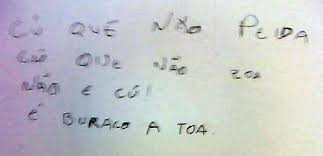 CÚ QUE NÃO PEIDA
CÚ QUE NÃO ZOA
NÃO E CÚ!
É BURACO A TOA.